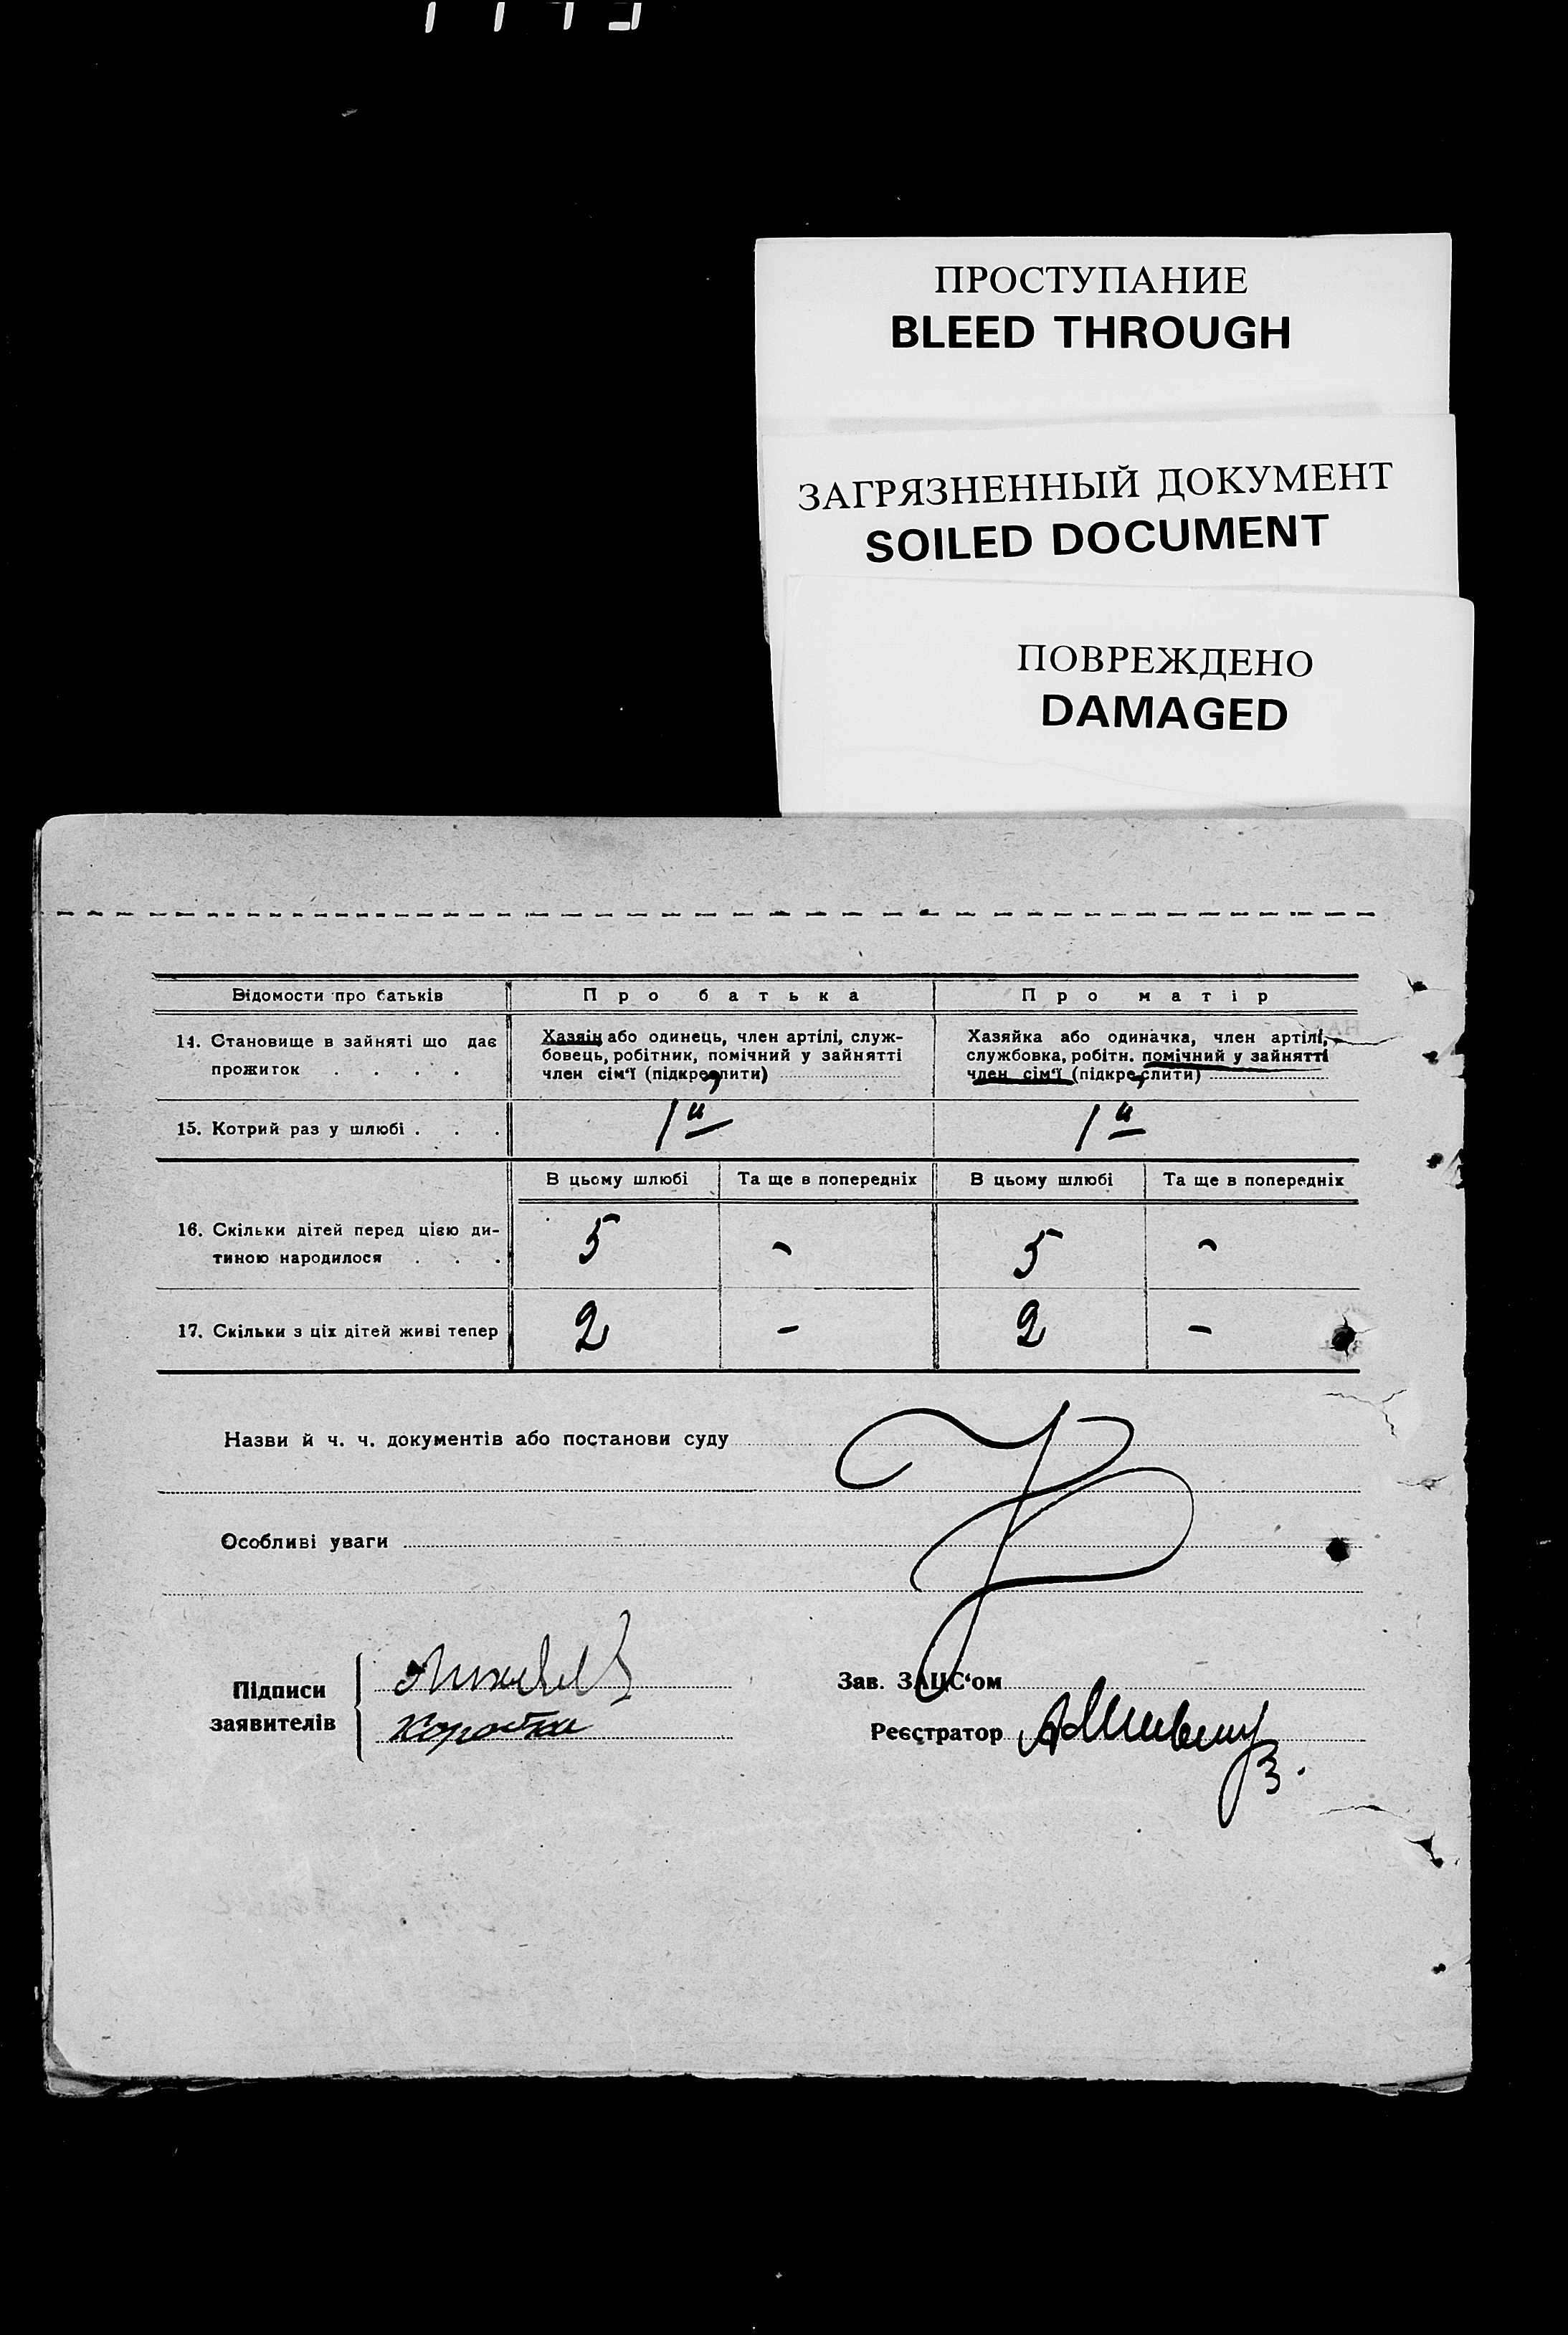 ПРОСТУПАНИЕ
BLEED THROUGH
ЗАГРЯЗНЕННЫЙ ДОКУМЕНТ
SOILED DOCUMENT
ПОВРЕЖДЕНО
DAMAGED
Відомости про батьків Про батька Про матір
14. Становище в зайняті що дає
прожиток . . . .
Хазяін або одинець, член артілі, служ-
бовець, робітник, помічний у зайнятті
член сім‘ї (підкреслити)
Хазяйка або одиначка, член артілі,
службовка, робітн. помічний у зайнятті
член сім‘ї (підкреслити)
15. Котрий раз у шлюбі . . . 1й 1й
В цьому шлюбі Та ще в попередніх В цьому шлюбі Та ще в попередніх
16. Скільки дітей перед цією ди-
тиною народилося . . . 5 - 5 -
17. Скільки з ціх дітей живі тепер 2 - 2 -
Назви й ч. ч. документів або постанови суду
Особливі уваги
Підписи
заявителів
Зав. ЗАЦС‘ом
Реєстратор